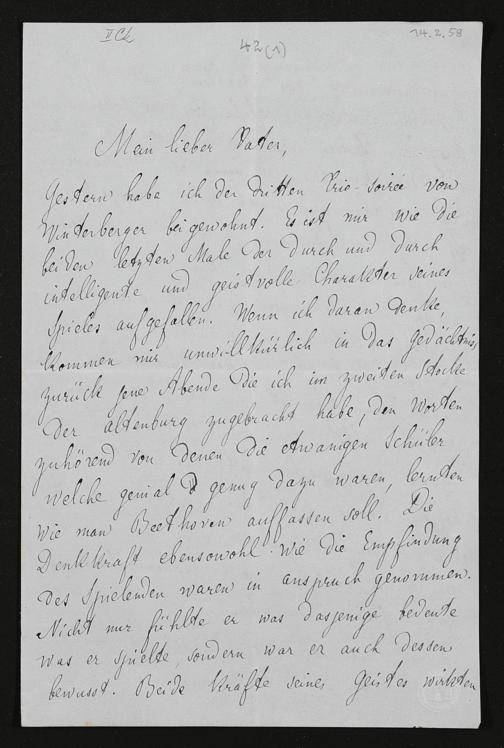 II Ck
42 (1)
14.2.58
Mein lieber Vater,
Gestern habe ich der dritten Trio-soirée von
Winterberger beigewohnt. Es ist mir wie die
beiden letzten Male der durch und durch
intelligente und geistvolle Charakter seines
Spieles aufgefallen. Wenn ich daran denke,
kommen mir unwillkürlich in das gedächtniss
zurück jene Abende die ich im zweiten Stocke
der Altenburg zugebracht habe, den Worten
zuhörend von denen die etwanigen Schüler
welche genial genug dazu waren, lernten
wie man Beethoven auffassen soll. Die
Denkkraft ebensowohl wie die Empfindung
des Spielenden waren in anspruch genommen.
Nicht nur fühlte er was dasjenige bedeute
was er spielte, sondern war er auch dessen
bewusst. Beide Kräfte seines Geistes wirkten